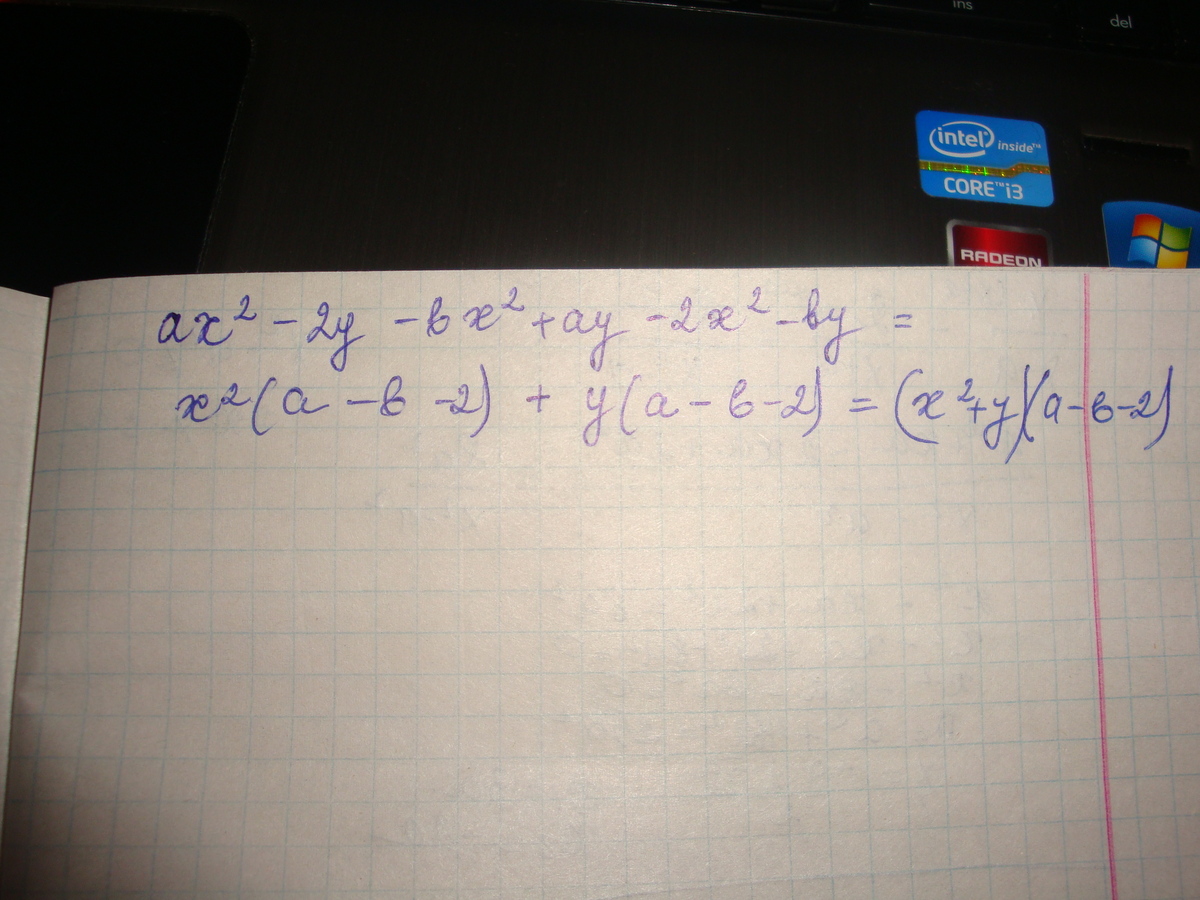 ins
del
intel inside™
CORE™ i3
RADEON
ax² - 2y - bx² + ay - 2x² - by =
x²(a - b - 2) + y(a - b - 2) = (x² + y)(a - b - 2)